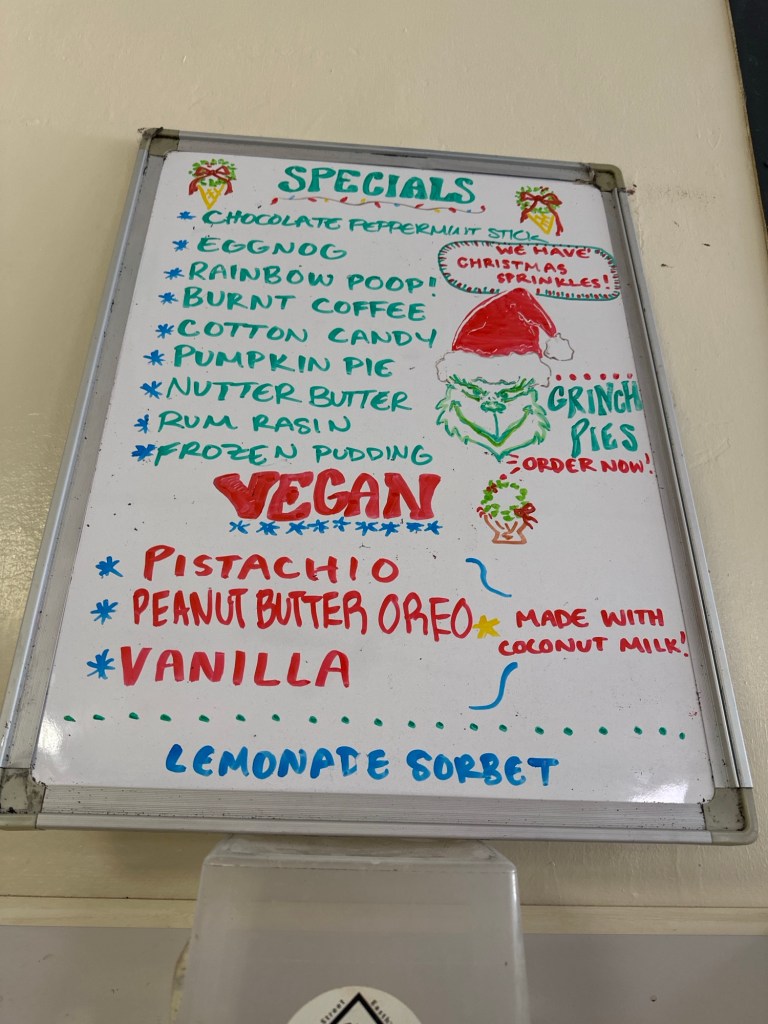 SPECIALS
* CHOCOLATE PEPPERMINT STICK
* EGGNOG
* RAINBOW POOP!
* BURNT COFFEE
* COTTON CANDY
* PUMPKIN PIE
* NUTTER BUTTER
* RUM RASIN
* FROZEN PUDDING
WE HAVE
CHRISTMAS
SPRINKLES!
GRINCH
PIES
ORDER NOW!
VEGAN
* PISTACHIO
* PEANUT BUTTER OREO
* VANILLA
* MADE WITH
COCONUT MILK!
LEMONADE SORBET
Street